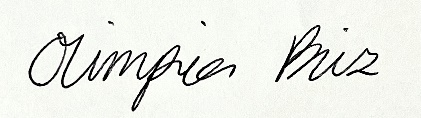 Olimpia Briz